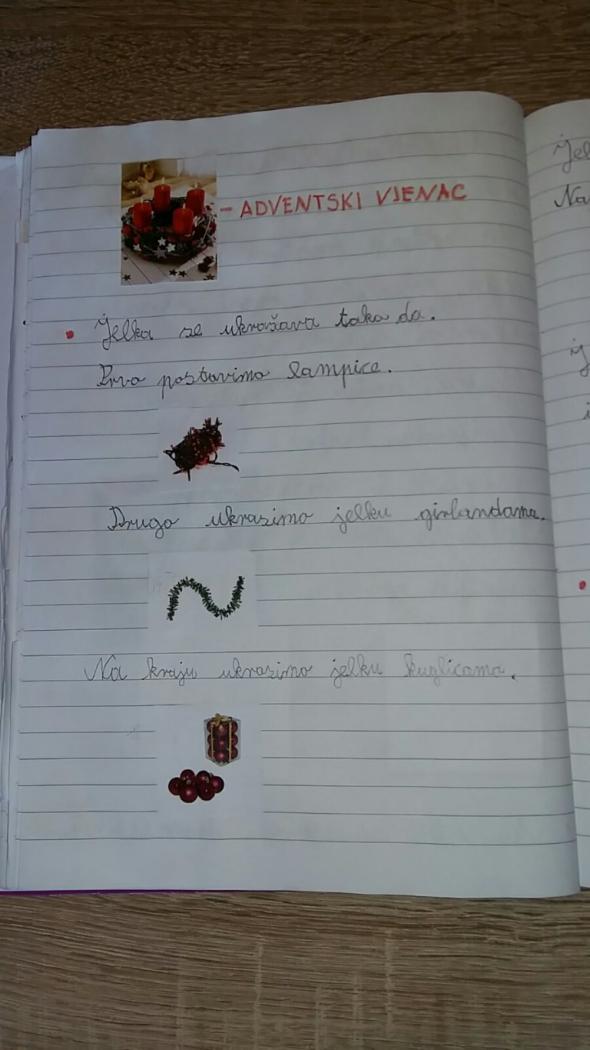 - ADVENTSKI VJENAC
Jelka se ukrašava tako da.
Prvo postavimo lampice.
Drugo ukrasimo jelku girlandama.
Na kraju ukrasimo jelku kuglicama.
Jel
Na